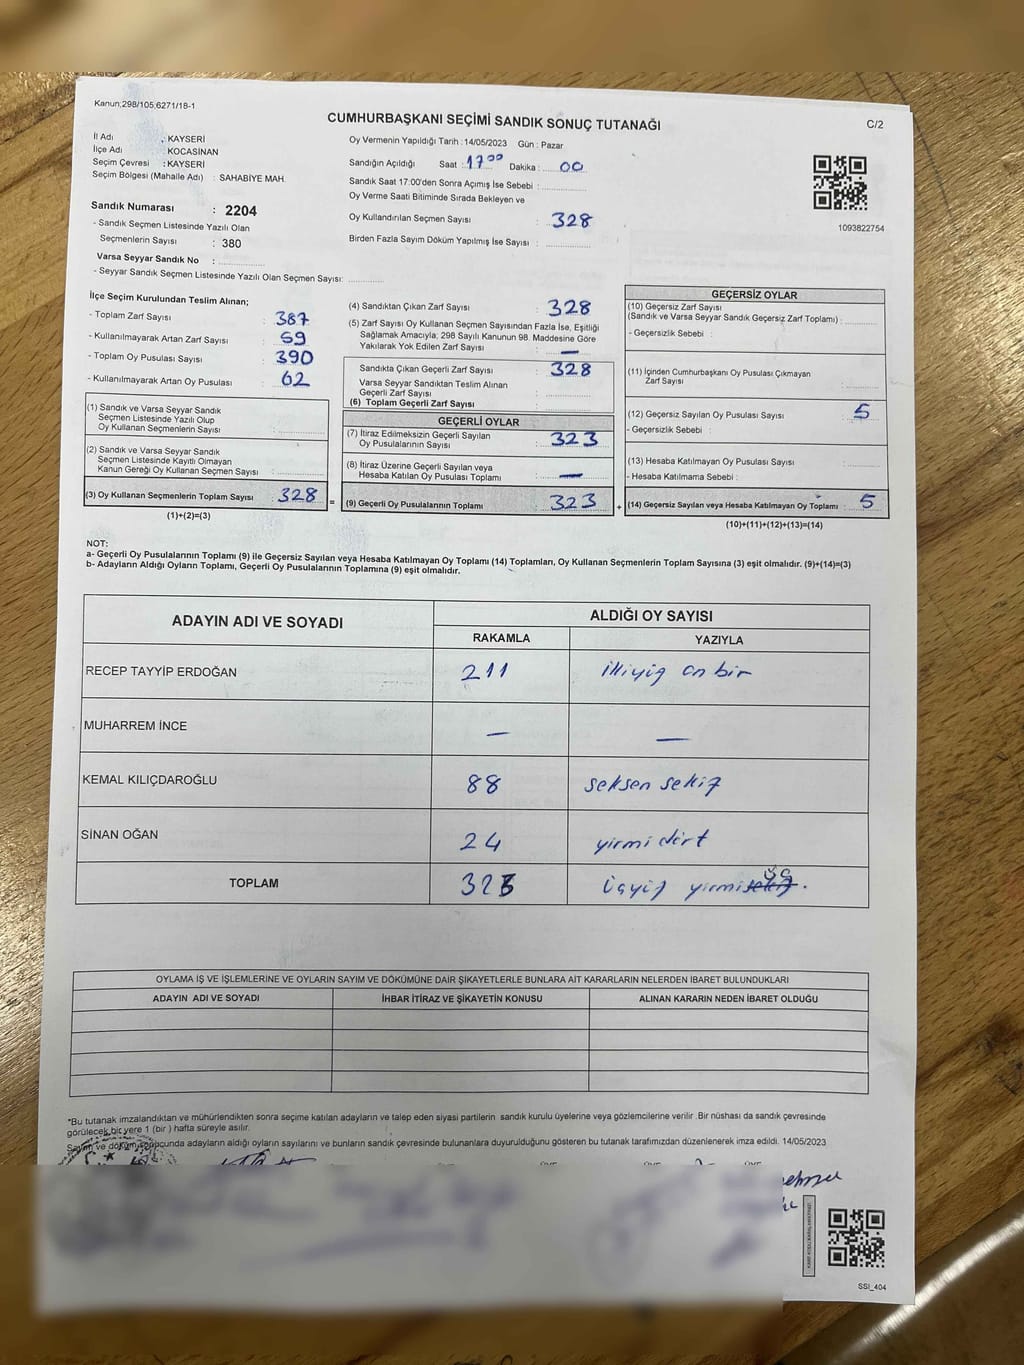 Kanun;298/105,6271/18-1
CUMHURBAŞKANI SEÇİMİ SANDIK SONUÇ TUTANAĞI
C/2
İl Adı : KAYSERİ
İlçe Adı : KOCASİNAN
Seçim Çevresi : KAYSERİ
Seçim Bölgesi (Mahalle Adı) : SAHABİYE MAH.
Oy Vermenin Yapıldığı Tarih : 14/05/2023 Gün : Pazar
Sandığın Açıldığı Saat : 17⁰⁰ Dakika : 00
Sandık Saat 17:00'den Sonra Açımış İse Sebebi :
Oy Verme Saati Bitiminde Sırada Bekleyen ve
Oy Kullandırılan Seçmen Sayısı : 328
Birden Fazla Sayım Döküm Yapılmış İse Sayısı :
1093822754
Sandık Numarası : 2204
- Sandık Seçmen Listesinde Yazılı Olan
Seçmenlerin Sayısı : 380
Varsa Seyyar Sandık No :
- Seyyar Sandık Seçmen Listesinde Yazılı Olan Seçmen Sayısı:
İlçe Seçim Kurulundan Teslim Alınan;
- Toplam Zarf Sayısı : 387
- Kullanılmayarak Artan Zarf Sayısı : 59
- Toplam Oy Pusulası Sayısı : 390
- Kullanılmayarak Artan Oy Pusulası : 62
(1) Sandık ve Varsa Seyyar Sandık
Seçmen Listesinde Yazılı Olup
Oy Kullanan Seçmenlerin Sayısı :
(2) Sandık ve Varsa Seyyar Sandık
Seçmen Listesinde Kayıtlı Olmayan
Kanun Gereği Oy Kullanan Seçmen Sayısı :
(3) Oy Kullanan Seçmenlerin Toplam Sayısı : 328
(1)+(2)=(3)
(4) Sandıktan Çıkan Zarf Sayısı : 328
(5) Zarf Sayısı Oy Kullanan Seçmen Sayısından Fazla İse, Eşitliği
Sağlamak Amacıyla; 298 Sayılı Kanunun 98. Maddesine Göre
Yakılarak Yok Edilen Zarf Sayısı : —
Sandıkta Çıkan Geçerli Zarf Sayısı : 328
Varsa Seyyar Sandıktan Teslim Alınan
Geçerli Zarf Sayısı :
(6) Toplam Geçerli Zarf Sayısı :
GEÇERLİ OYLAR
(7) İtiraz Edilmeksizin Geçerli Sayılan
Oy Pusulalarının Sayısı : 323
(8) İtiraz Üzerine Geçerli Sayılan veya
Hesaba Katılan Oy Pusulası Toplamı : —
= (9) Geçerli Oy Pusulalarının Toplamı : 323
GEÇERSİZ OYLAR
(10) Geçersiz Zarf Sayısı
(Sandık ve Varsa Seyyar Sandık Geçersiz Zarf Toplamı) :
- Geçersizlik Sebebi :
(11) İçinden Cumhurbaşkanı Oy Pusulası Çıkmayan
Zarf Sayısı :
(12) Geçersiz Sayılan Oy Pusulası Sayısı : 5
- Geçersizlik Sebebi :
(13) Hesaba Katılmayan Oy Pusulası Sayısı :
- Hesaba Katılmama Sebebi :
+ (14) Geçersiz Sayılan veya Hesaba Katılmayan Oy Toplamı : 5
(10)+(11)+(12)+(13)=(14)
NOT:
a- Geçerli Oy Pusulalarının Toplamı (9) ile Geçersiz Sayılan veya Hesaba Katılmayan Oy Toplamı (14) Toplamları, Oy Kullanan Seçmenlerin Toplam Sayısına (3) eşit olmalıdır. (9)+(14)=(3)
b- Adayların Aldığı Oyların Toplamı, Geçerli Oy Pusulalarının Toplamına (9) eşit olmalıdır.
ADAYIN ADI VE SOYADI ALDIĞI OY SAYISI
RAKAMLA YAZIYLA
RECEP TAYYİP ERDOĞAN 211 ikiyiz on bir
MUHARREM İNCE — —
KEMAL KILIÇDAROĞLU 88 seksen sekiz
SİNAN OĞAN 24 yirmi dört
TOPLAM 323 üçyüz yirmi sekiz üç.
OYLAMA İŞ VE İŞLEMLERİNE VE OYLARIN SAYIM VE DÖKÜMÜNE DAİR ŞİKAYETLERLE BUNLARA AİT KARARLARIN NELERDEN İBARET BULUNDUKLARI
ADAYIN ADI VE SOYADI İHBAR İTİRAZ VE ŞİKAYETİN KONUSU ALINAN KARARIN NEDEN İBARET OLDUĞU
*Bu tutanak imzalandıktan ve mühürlendikten sonra seçime katılan adayların ve talep eden siyasi partilerin sandık kurulu üyelerine veya gözlemcilerine verilir .Bir nüshası da sandık çevresinde
görülecek bir yere 1 (bir ) hafta süreyle asılır.
Sayım ve döküm sonucunda adayların aldığı oyların sayılarını ve bunların sandık çevresinde bulunanlara duyurulduğunu gösteren bu tutanak tarafımızdan düzenlenerek imza edildi. 14/05/2023
SSI_404